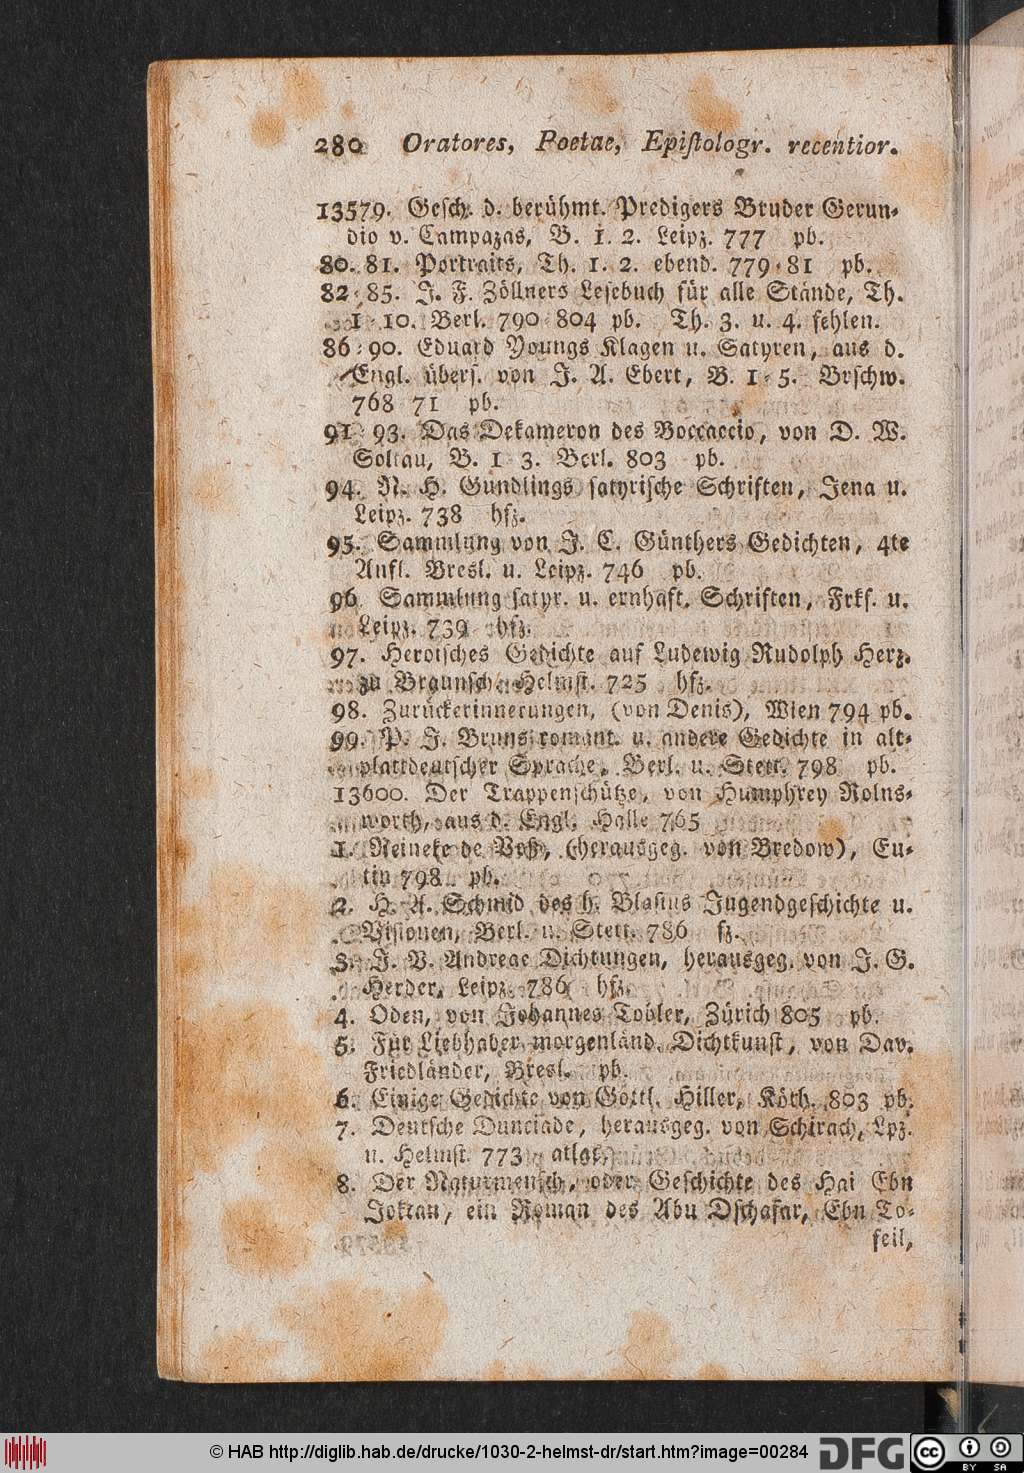 280 Oratores, Poetae, Epiſtologr. recentior.
13579. Geſch. d. berühmt. Predigers Bruder Gerun-
dio v. Campazas, B. 1. 2. Leipz. 777 pb.
80. 81. Portraits, Th. 1. 2. ebend. 779-81 pb.
82-85. J. F. Zöllners Leſebuch für alle Stände, Th.
1-10. Berl. 790-804 pb. Th. 3. u. 4. fehlen.
86-90. Eduard Youngs Klagen u. Satyren, aus d.
Engl. überſ. von J. A. Ebert, B. 1-5. Brſchw.
768-71 pb.
91-93. Das Dekameron des Boccaccio, von D. W.
Soltau, B. 1-3. Berl. 803 pb.
94. N. H. Gundlings ſatyriſche Schriften, Jena u.
Leipz. 738 hfz.
95. Sammlung von J. C. Günthers Gedichten, 4te
Aufl. Bresl. u. Leipz. 746 pb.
96. Sammlung ſatyr. u. ernhaft. Schriften, Frkf. u.
Leipz. 739 hfz.
97. Heroiſches Gedichte auf Ludewig Rudolph Herz.
zu Braunſch. Helmſt. 725 hfz.
98. Zurückerinnerungen, (von Denis), Wien 794 pb.
99. P. J. Bruns romant. u. andere Gedichte in alt-
plattdeutſcher Sprache, Berl. u. Stett. 798 pb.
13600. Der Trappenſchütze, von Humphrey Rolns-
worth, aus d. Engl. Halle 765
1. Reineke de Voß, (herausgeg. von Bredow), Eu-
tin 798 pb.
2. H. A. Schmid des h. Blaſius Jugendgeſchichte u.
Viſionen, Berl. u. Stett. 786 fz.
3. J. V. Andreae Dichtungen, herausgeg. von J. G.
Herder, Leipz. 786 hfz.
4. Oden, von Johannes Tobler, Zürich 805 pb.
5. Für Liebhaber morgenländ. Dichtkunſt, von Dav.
Friedländer, Bresl. pb.
6. Einige Gedichte von Gottl. Hiller, Köth. 803 pb.
7. Deutſche Dunciade, herausgeg. von Schirach, Lpz.
u. Helmſt. 773 atlaf.
8. Der Naturmenſch, oder Geſchichte des Hai Ebn
Joktan, ein Roman des Abu Dſchafar, Ebn To-
feil,
© HAB http://diglib.hab.de/drucke/1030-2-helmst-dr/start.htm?image=00284
DFG
cc BY SA